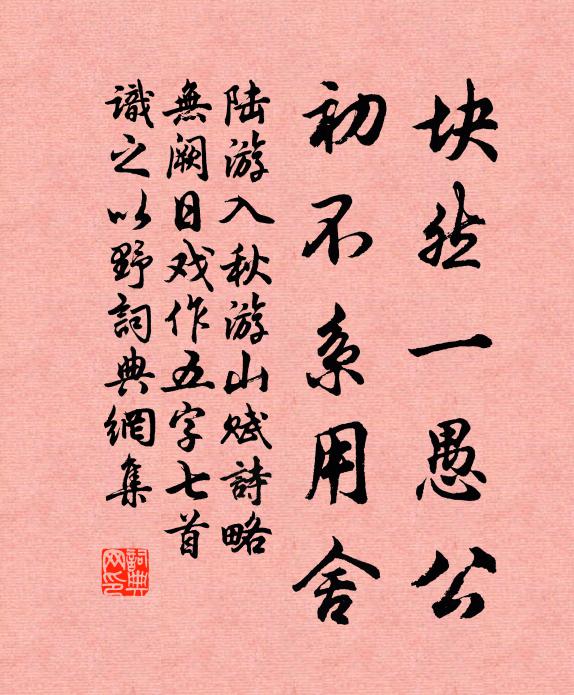 块然一愚公
初不系用舍
陆游入秋游山赋詩略
無阙日戏作五字七首
識之以野詞典網集
詞典网印